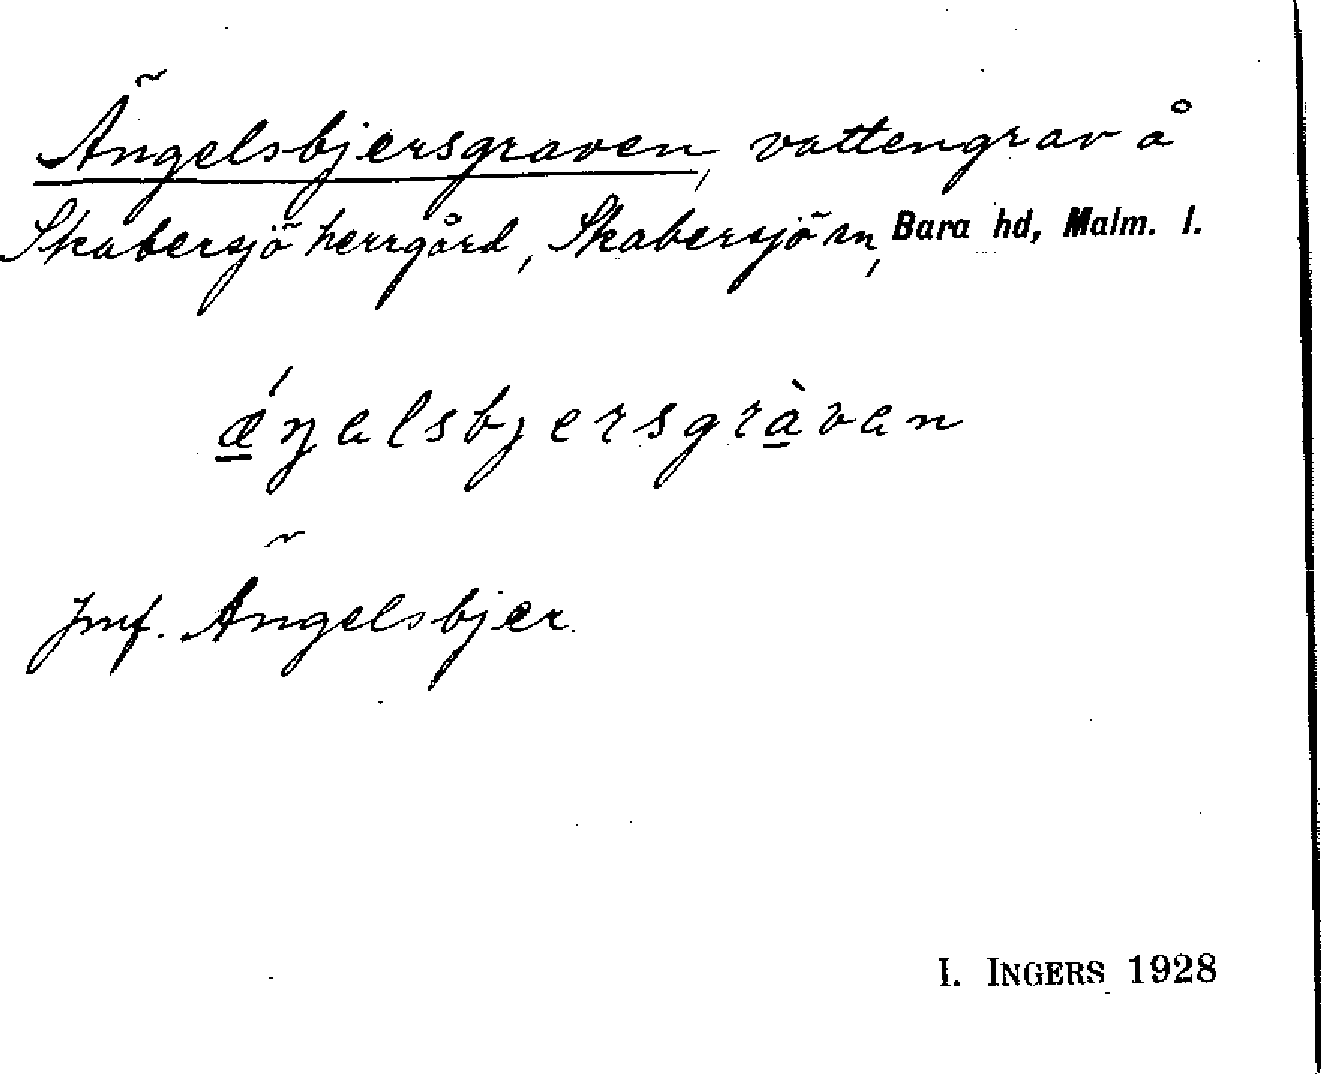 Ängelsbjersgraven, vattengrav å
Skabersjö herrgård, Skabersjö sn, Bara hd, Malm. l.
ǽŋalsbjersgràvan
Jmf. Ängelsbjer.
I. INGERS 1928